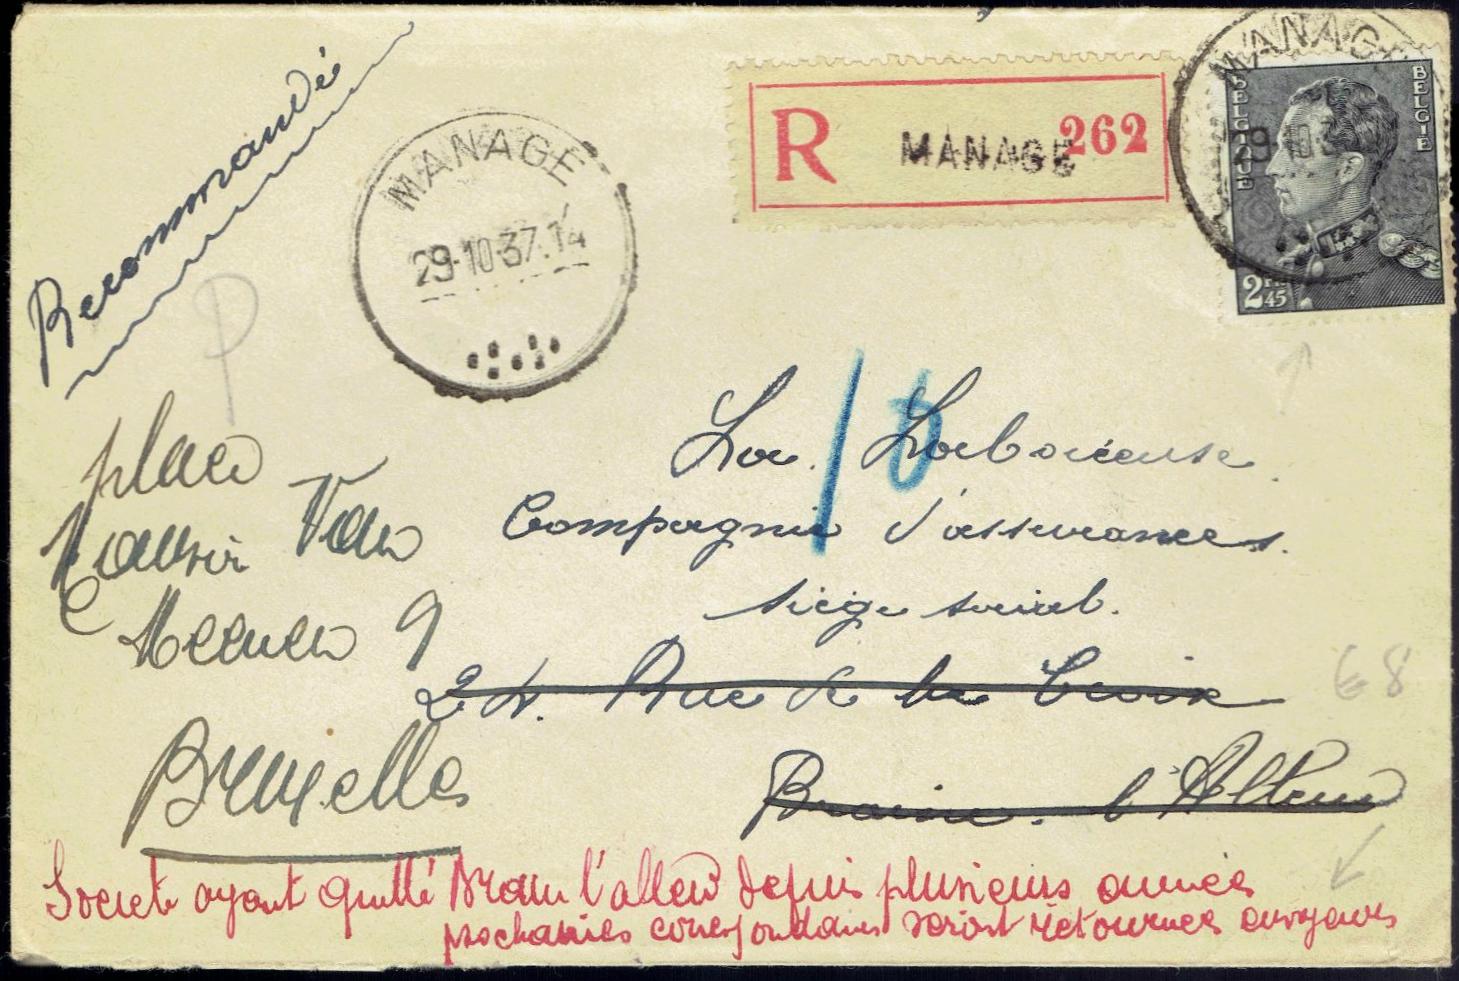 Recommandé
MANAGE
29-10-37.14
R MANAGE 262
MANAGE
29 10 3
BELGIQUE
BELGIË
2 FR 45
P
10
La Laborieuse
Compagnie d'assurances.
siège social.
24. Rue de la Croix
Braine. l'Alleud
68
place
Van
Meenen 9
Bruxelles
Societe ayant quitté Brain l'alleud depuis plusieurs années
prochaines correspondances seront retournées envoyeurs